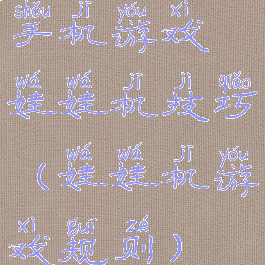 shǒu jī yóu xì
手机游戏
wá wá jī jì qiǎo
娃娃机技巧
wá wá jī yóu
(娃娃机游
xì guī zé
戏规则)